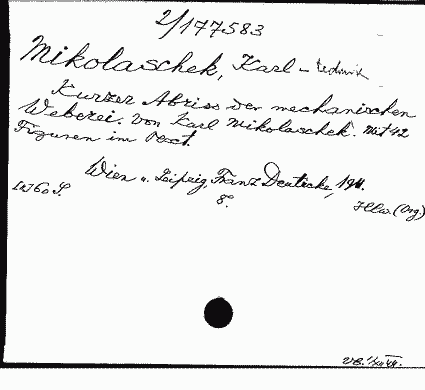 2/177583
Mikolaschek, Karl - technik
Kurzer Abriss der mechanischen
Weberei. Von Karl Mikolaschek. Mit 42
Figuren im Text.
Wien u. Leipzig, Franz Deuticke, 1911.
60 S. 8°.